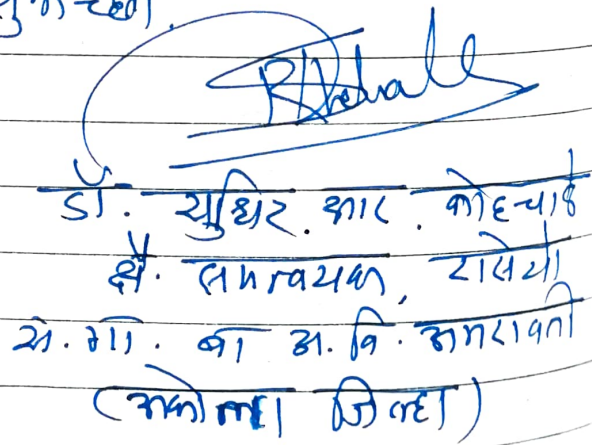 डॉ. सुधिर. आर. कोहचाडे
क्षे. समन्वयक, रासेयो
सं. गा. बा अ. वि. अमरावती
(अकोला जिल्हा)